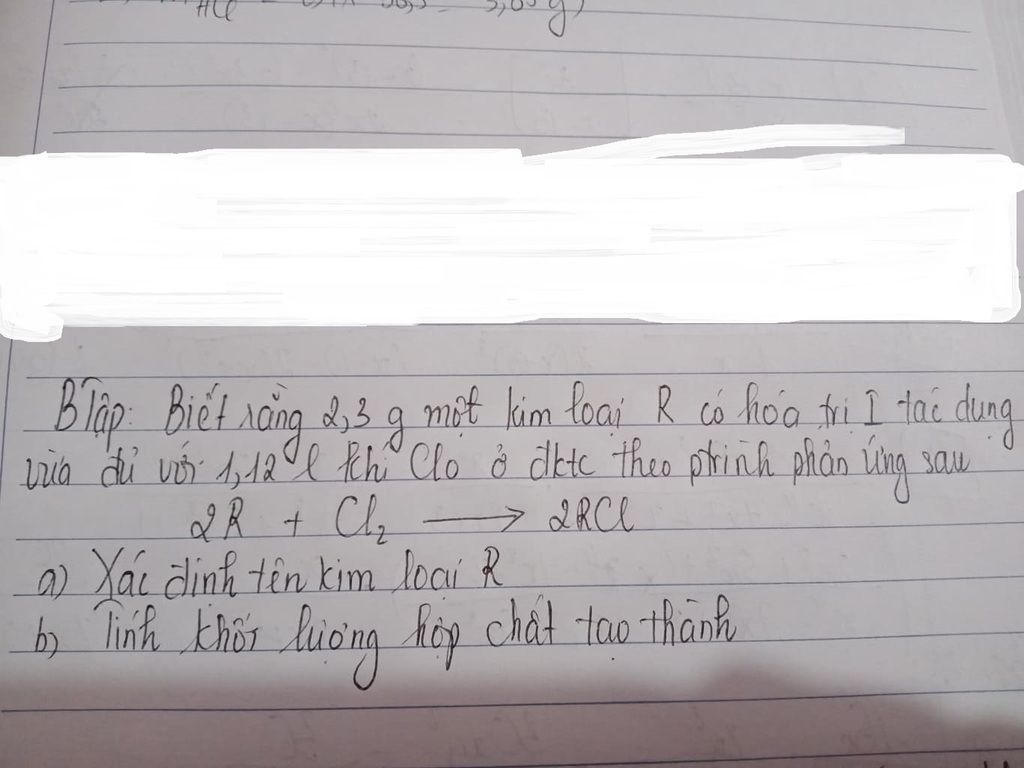 BTập: Biết rằng 2,3 g một kim loại R có hóa trị I tác dụng
vừa đủ với 1,12 l khí Clo ở đktc theo ptrình phản ứng sau
2R + Cl₂ ⟶ 2RCl
a) Xác định tên kim loại R
b) Tính khối lượng hợp chất tạo thành